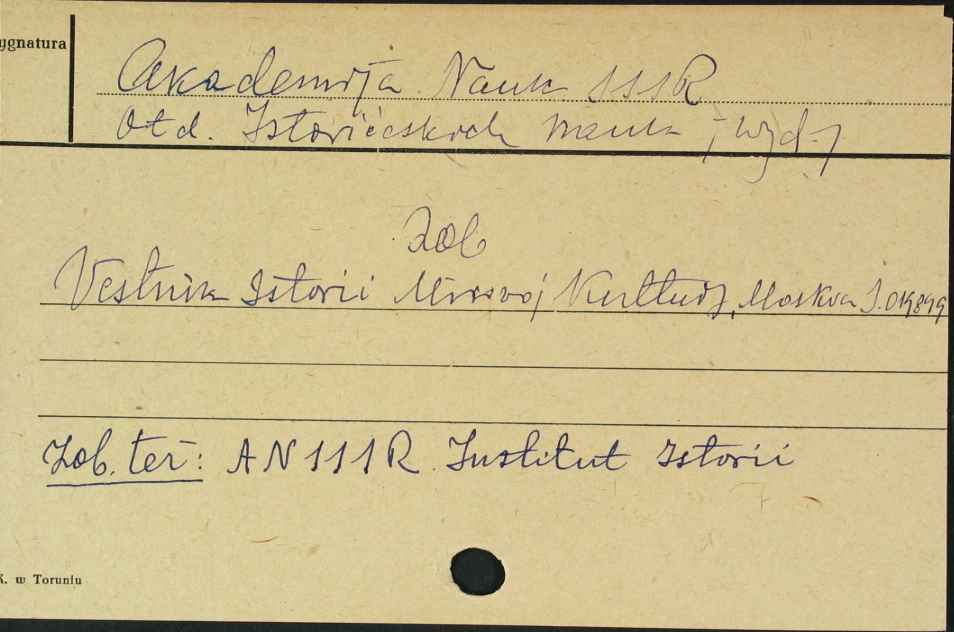 ygnatura
Akademija Nauk SSSR
Otd. Istoričeskich nauk /wyd./
Zob
Vestnik Istorii Mirovoj Kultury, Moskva S.019899
Zob. też: AN SSSR Institut Istorii
K. w Toruniu